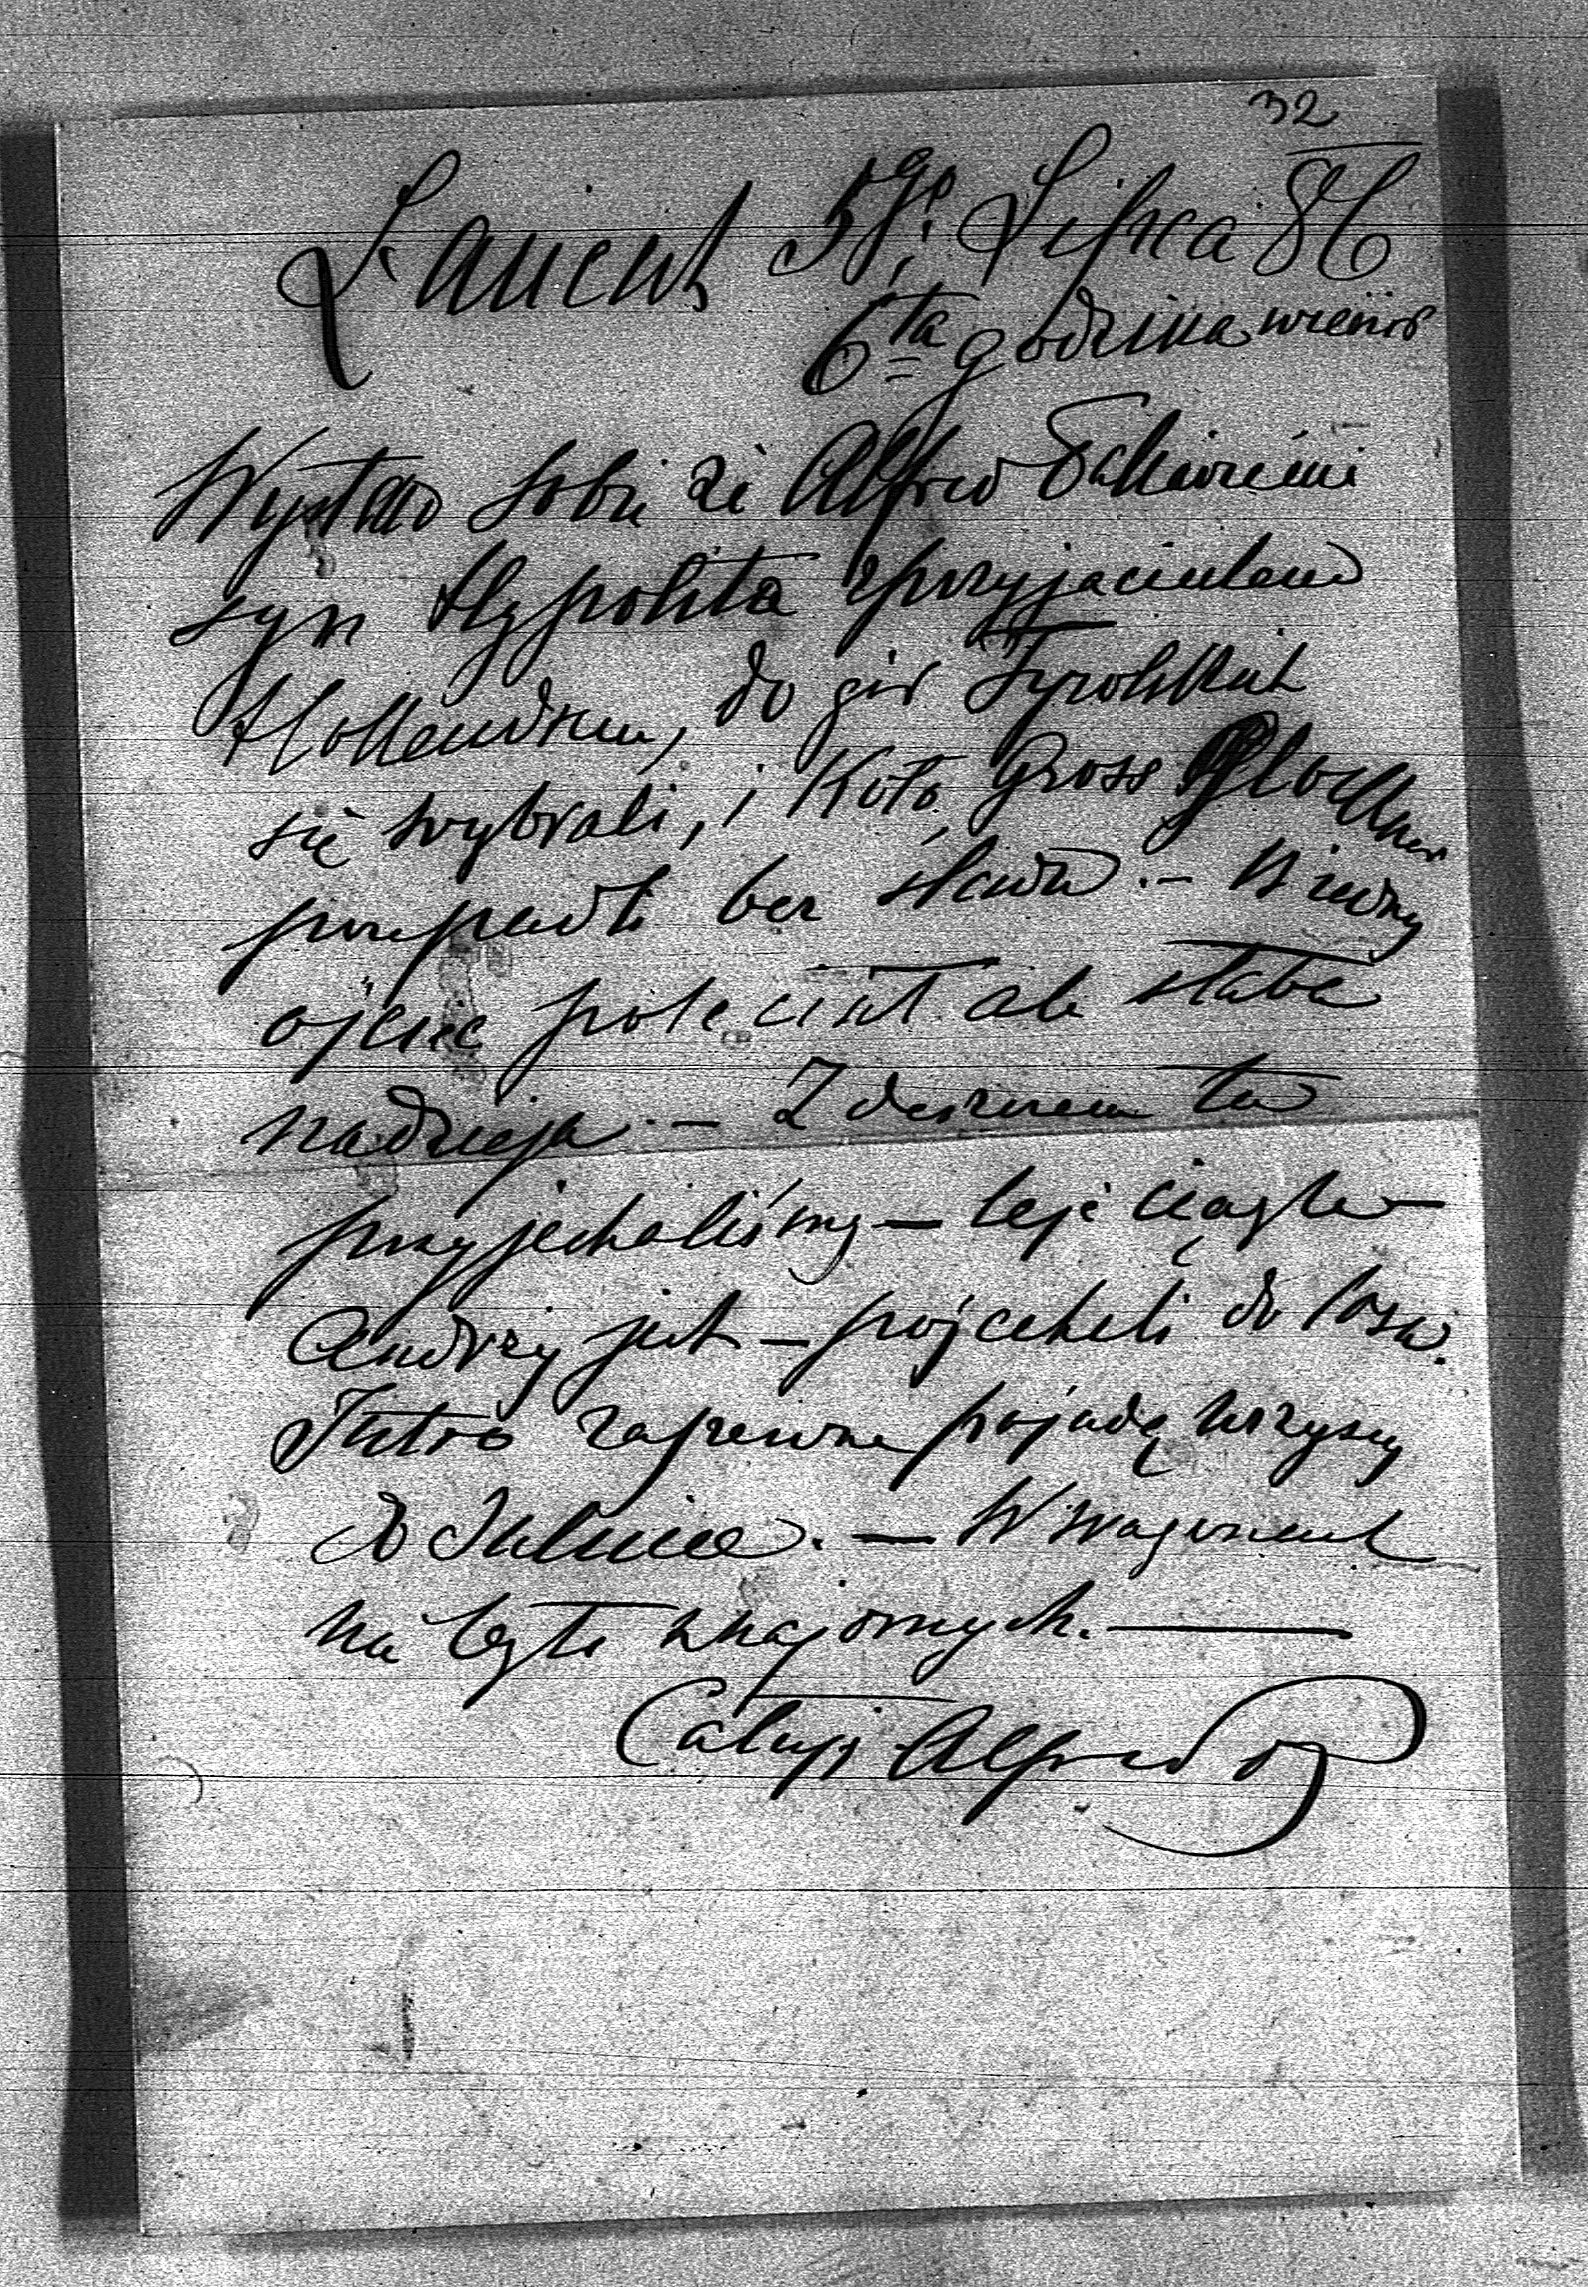 32
Łańcut 5go Lipca 86
6ta godzina wieczór
Wystaw sobie że Alfred
syn Hypolita z przyjacielem
Hollendrem, do gór Tyrolskich
się wybrali, i koło Gross Glockner
przepadli bez śladu. – Biedny
ojciec poleciał ale słaba
nadzieja. – Z deszczem tu
przyjechaliśmy – leje ciągle –
Andrzej jest – pojechali do lasu.
Jutro zapewne pojadą wszyscy
do Julina. – W wagonach
nie było znajomych. –
Całuję Alfred